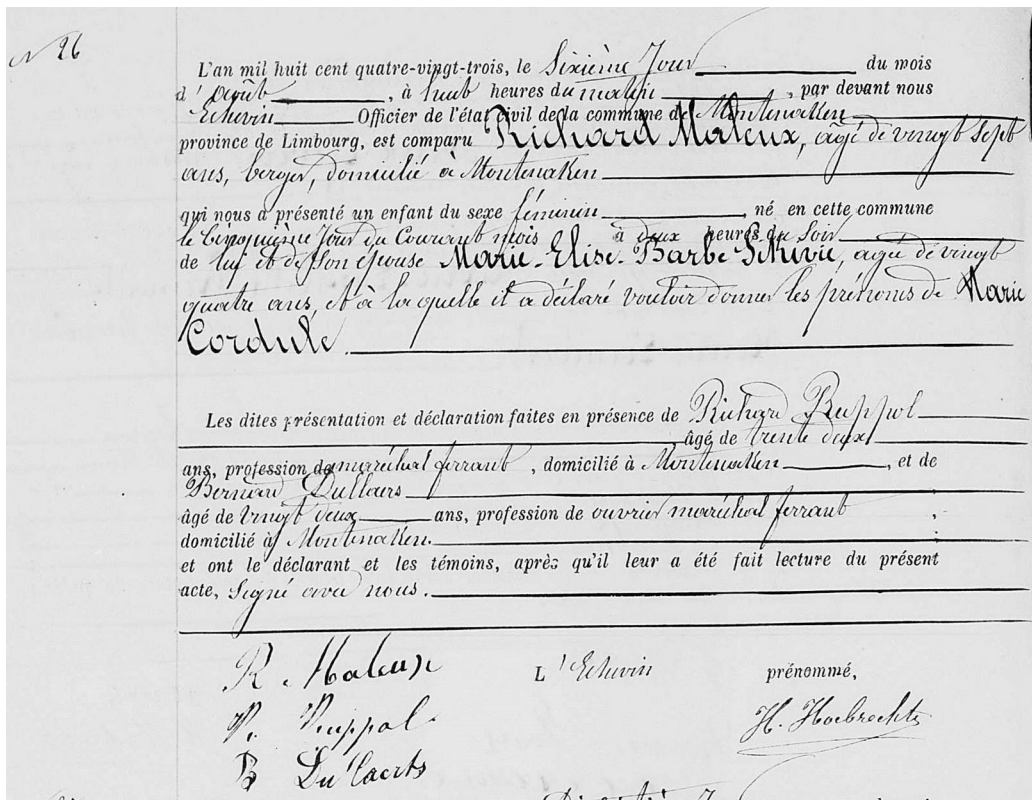 N 26
L'an mil huit cent quatre-vingt-trois, le Sixième Jour du mois
d'août, à huit heures du matin, par devant nous
Echevin Officier de l'état civil de la commune de Montenaken
province de Limbourg, est comparu Richard Maleux, agé de vingt Sept
ans, berger, domicilié à Montenaken
qui nous a présenté un enfant du sexe féminin, né en cette commune
le Cinquième Jour du Courant mois à deux heures du Soir
de lui et de Son épouse Marie-Elise-Barbe, agée de vingt
quatre ans, et à laquelle il a déclaré vouloir donner les prénoms de Marie
Cordule.
Les dites présentation et déclaration faites en présence de Richard Ruppol
âgé de trente deux
ans, profession de maréchal ferrant, domicilié à Montenaken, et de
Bernard Dullaers
âgé de vingt deux ans, profession de ouvrier maréchal ferrant ;
domicilié à Montenaken.
et ont le déclarant et les témoins, après qu'il leur a été fait lecture du présent
acte, Signé avec nous.
R. Maleux L'Echevin prénommé,
R. Ruppol H. Hoebrechts
B Dullaerts